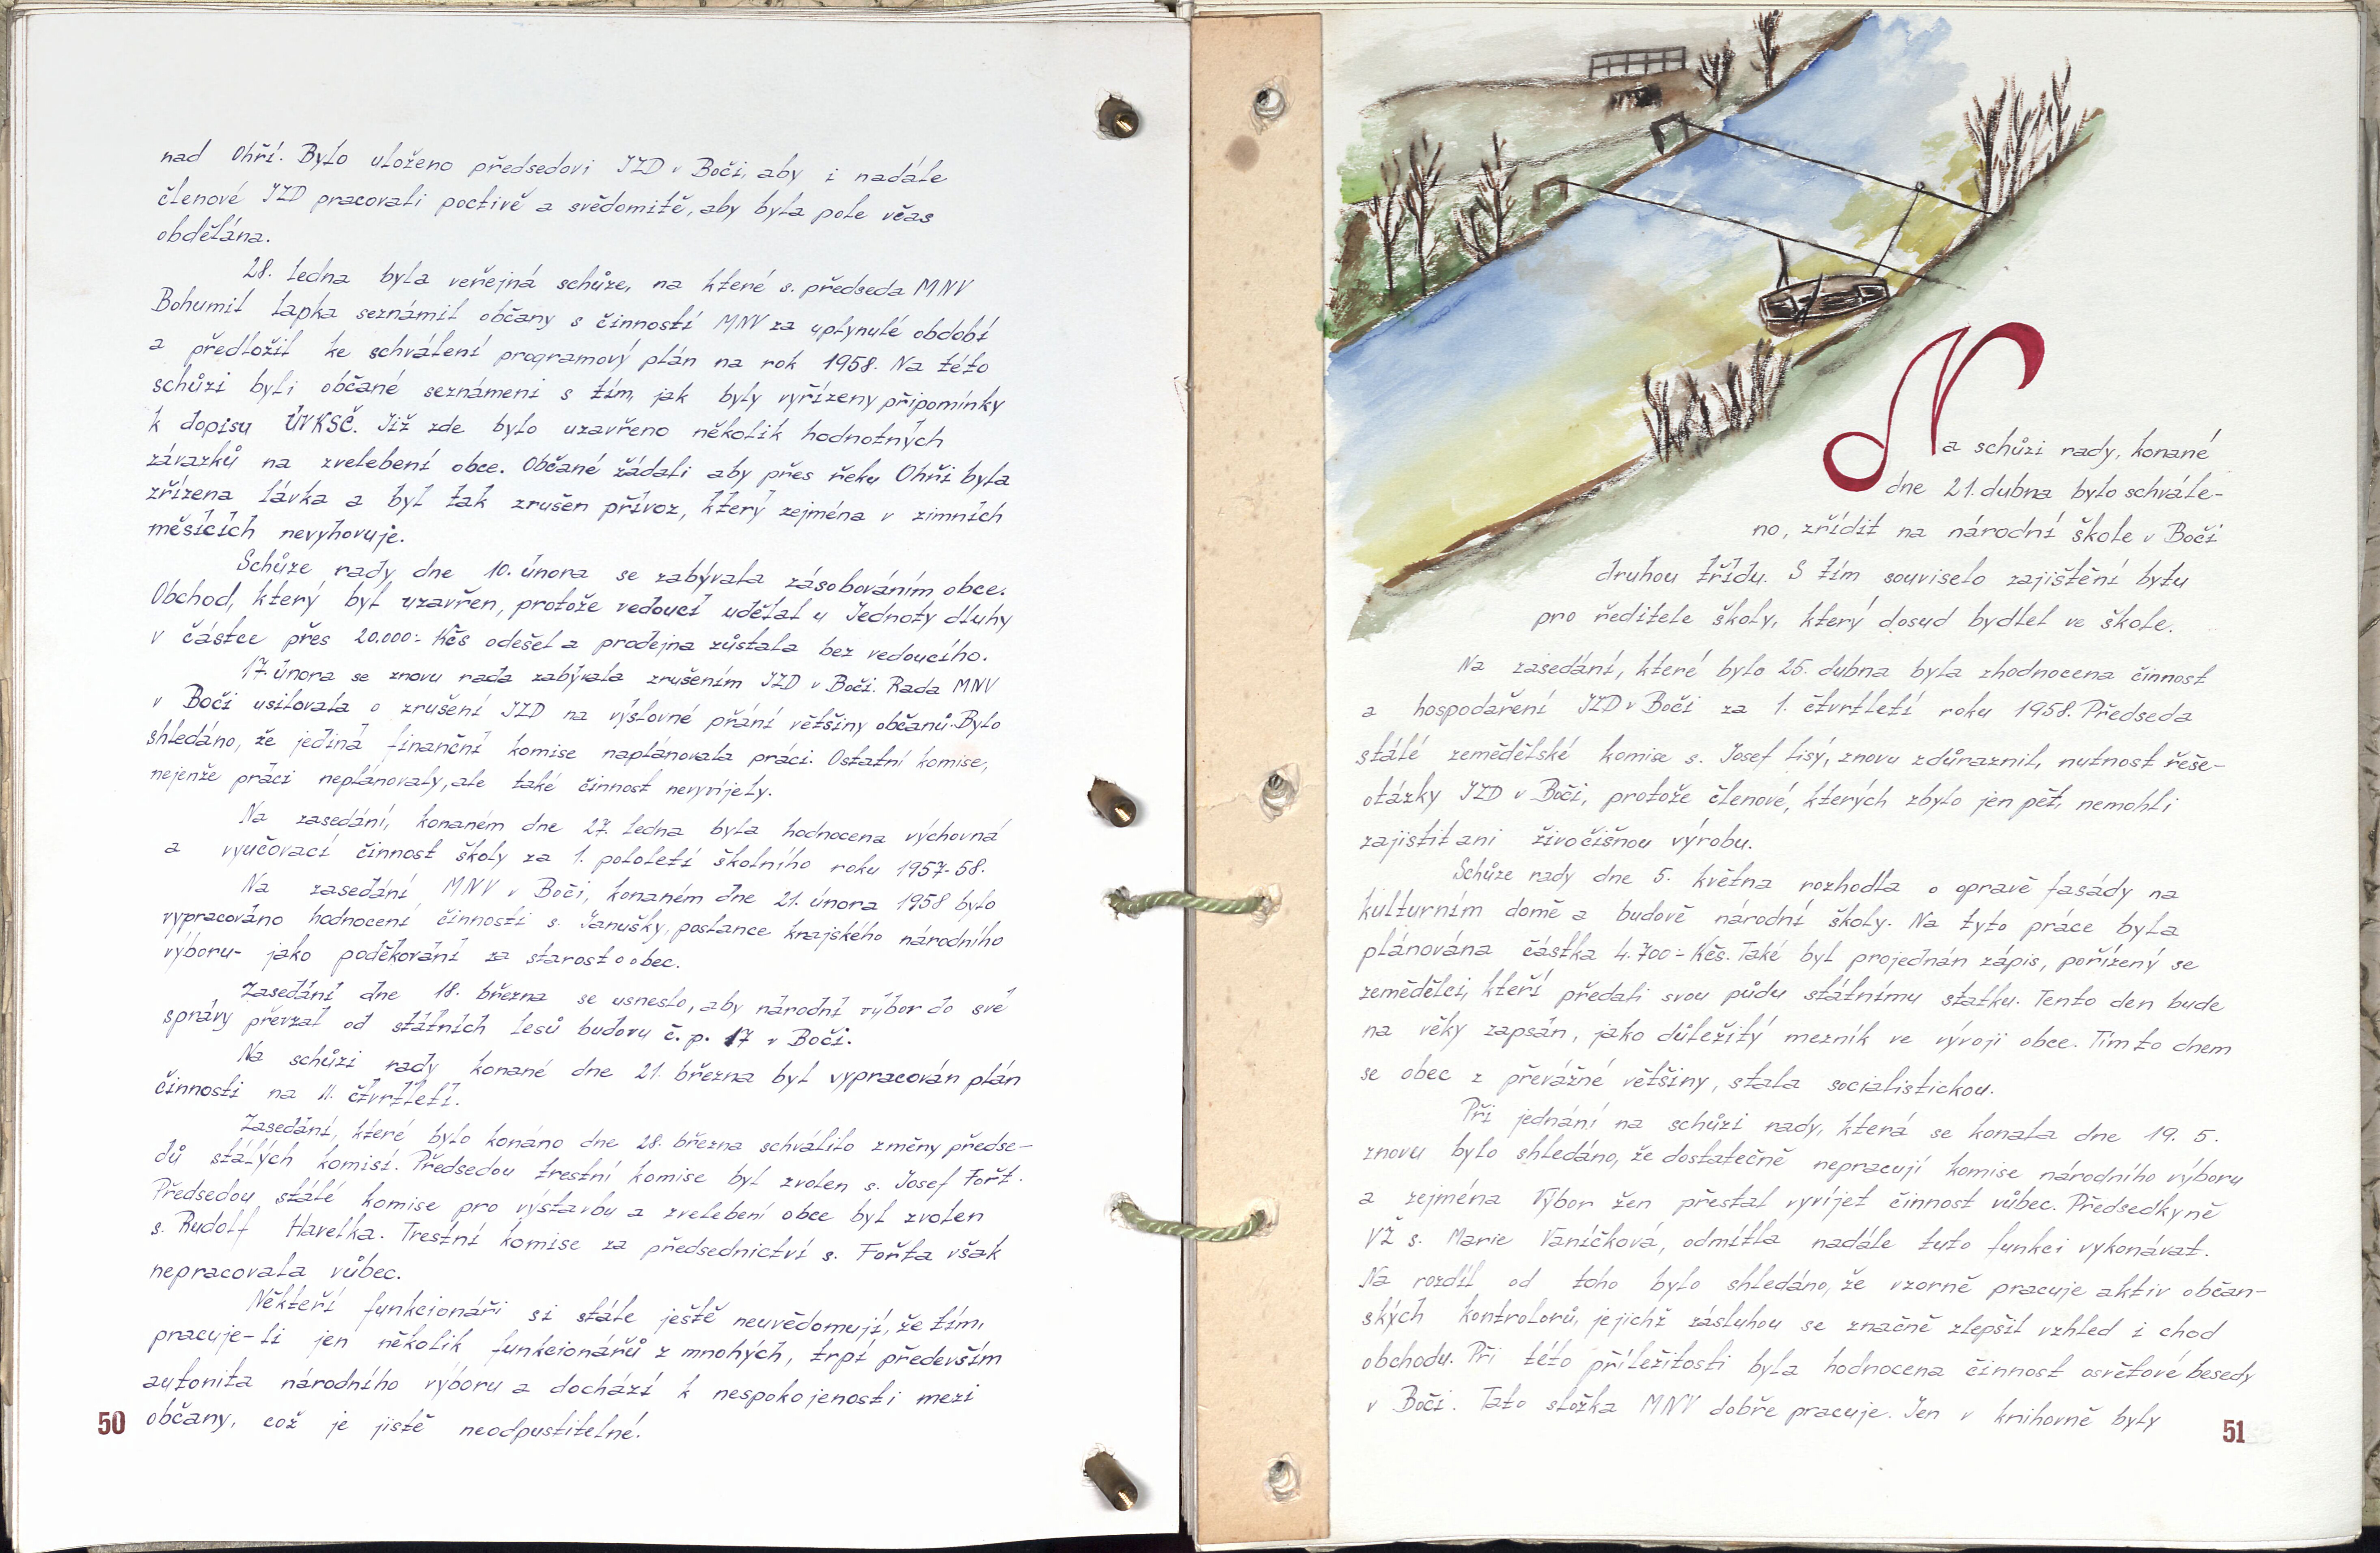 nad Ohří. Bylo uloženo předsedovi JZD v Boči, aby i nadále
členové JZD pracovali poctivě a svědomitě, aby byla pole včas
obdělána.
28. ledna byla veřejná schůze, na které s. předseda MNV
Bohumil Lapka seznámil občany s činností MNV za uplynulé období
a předložil ke schválení programový plán na rok 1958. Na této
schůzi byli občané seznámeni s tím, jak byly vyřízeny připomínky
k dopisu ÚVKSČ. Již zde bylo uzavřeno několik hodnotných
závazků na zvelebení obce. Občané žádali aby přes řeku Ohři byla
zřízena lávka a byl tak zrušen přívoz, který zejména v zimních
měsících nevyhovuje.
Schůze rady dne 10. února se zabývala zásobováním obce.
Obchod, který byl uzavřen, protože vedoucí udělal u Jednoty dluhy
v částce přes 20.000:- Kčs odešel a prodejna zůstala bez vedoucího.
17. února se znovu rada zabývala zrušením JZD v Boči. Rada MNV
v Boči usilovala o zrušení JZD na výslovné přání většiny občanů. Bylo
shledáno, že jediná finanční komise naplánovala práci. Ostatní komise,
nejenže práci neplánovaly, ale také činnost nevyvíjely.
Na zasedání, konaném dne 27. ledna byla hodnocena výchovná
a vyučovací činnost školy za 1. pololetí školního roku 1957-58.
Na zasedání MNV v Boči, konaném dne 21. února 1958 bylo
vypracováno hodnocení činnosti s. Janušky, poslance krajského národního
výboru- jako poděkování za starost o obec.
Zasedání dne 18. března se usneslo, aby národní výbor do své
správy převzal od státních lesů budovu č.p. 17 v Boči.
Na schůzi rady konané dne 21. března byl vypracován plán
činnosti na II. čtvrtletí.
Zasedání, které bylo konáno dne 28. března schválilo změny předse-
dů stálých komisí. Předsedou trestní komise byl zvolen s. Josef Fořt.
Předsedou stálé komise pro výstavbu a zvelebení obce byl zvolen
s. Rudolf Havelka. Trestní komise za předsednictví s. Fořta však
nepracovala vůbec.
Někteří funkcionáři si stále ještě neuvědomují, že tím,
pracuje-li jen několik funkcionářů z mnohých, trpí především
autorita národního výboru a dochází k nespokojenosti mezi
občany, což je jistě neodpustitelné.
50
Na schůzi rady, konané
dne 21. dubna bylo schvále-
no, zřídit na národní škole v Boči
druhou třídu. S tím souviselo zajištění bytu
pro ředitele školy, který dosud bydlel ve škole.
Na zasedání, které bylo 25. dubna byla zhodnocena činnost
a hospodaření JZD v Boči za 1. čtvrtletí roku 1958. Předseda
stálé zemědělské komise s. Josef Lisý, znovu zdůraznil, nutnost řeše-
otázky JZD v Boči, protože členové, kterých zbylo jen pět, nemohli
zajistit ani živočišnou výrobu.
Schůze rady dne 5. května rozhodla o opravě fasády na
kulturním domě a budově národní školy. Na tyto práce byla
plánována částka 4.700:- Kčs. Také byl projednán zápis, pořízený se
zemědělci, kteří předali svou půdu státnímu statku. Tento den bude
na věky zapsán, jako důležitý mezník ve vývoji obce. Tímto dnem
se obec z převážné většiny, stala socialistickou.
Při jednání na schůzi rady, která se konala dne 19. 5.
znovu bylo shledáno, že dostatečně nepracují komise národního výboru
a zejména Výbor žen přestal vyvíjet činnost vůbec. Předsedkyně
VŽ s. Marie Vaníčková, odmítla nadále tuto funkci vykonávat.
Na rozdíl od toho bylo shledáno, že vzorně pracuje aktiv občan-
ských kontrolorů, jejichž zásluhou se značně zlepšil vzhled i chod
obchodu. Při této příležitosti byla hodnocena činnost osvětové besedy
v Boči. Tato složka MNV dobře pracuje. Jen v knihovně byly
51